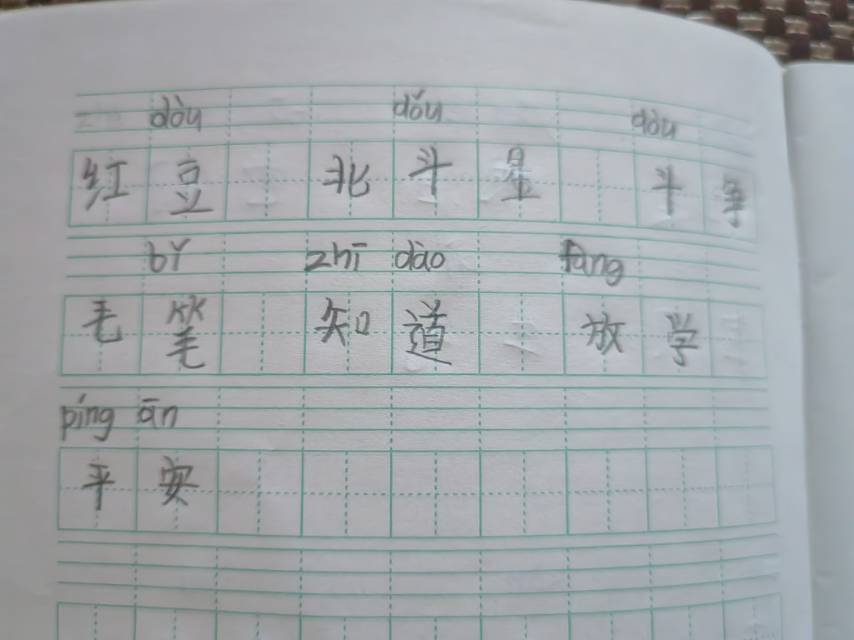 dòu dǒu dòu
红豆 北斗星 斗争
bǐ zhī dào fàng
毛笔 知道 放学
píng ān
平安